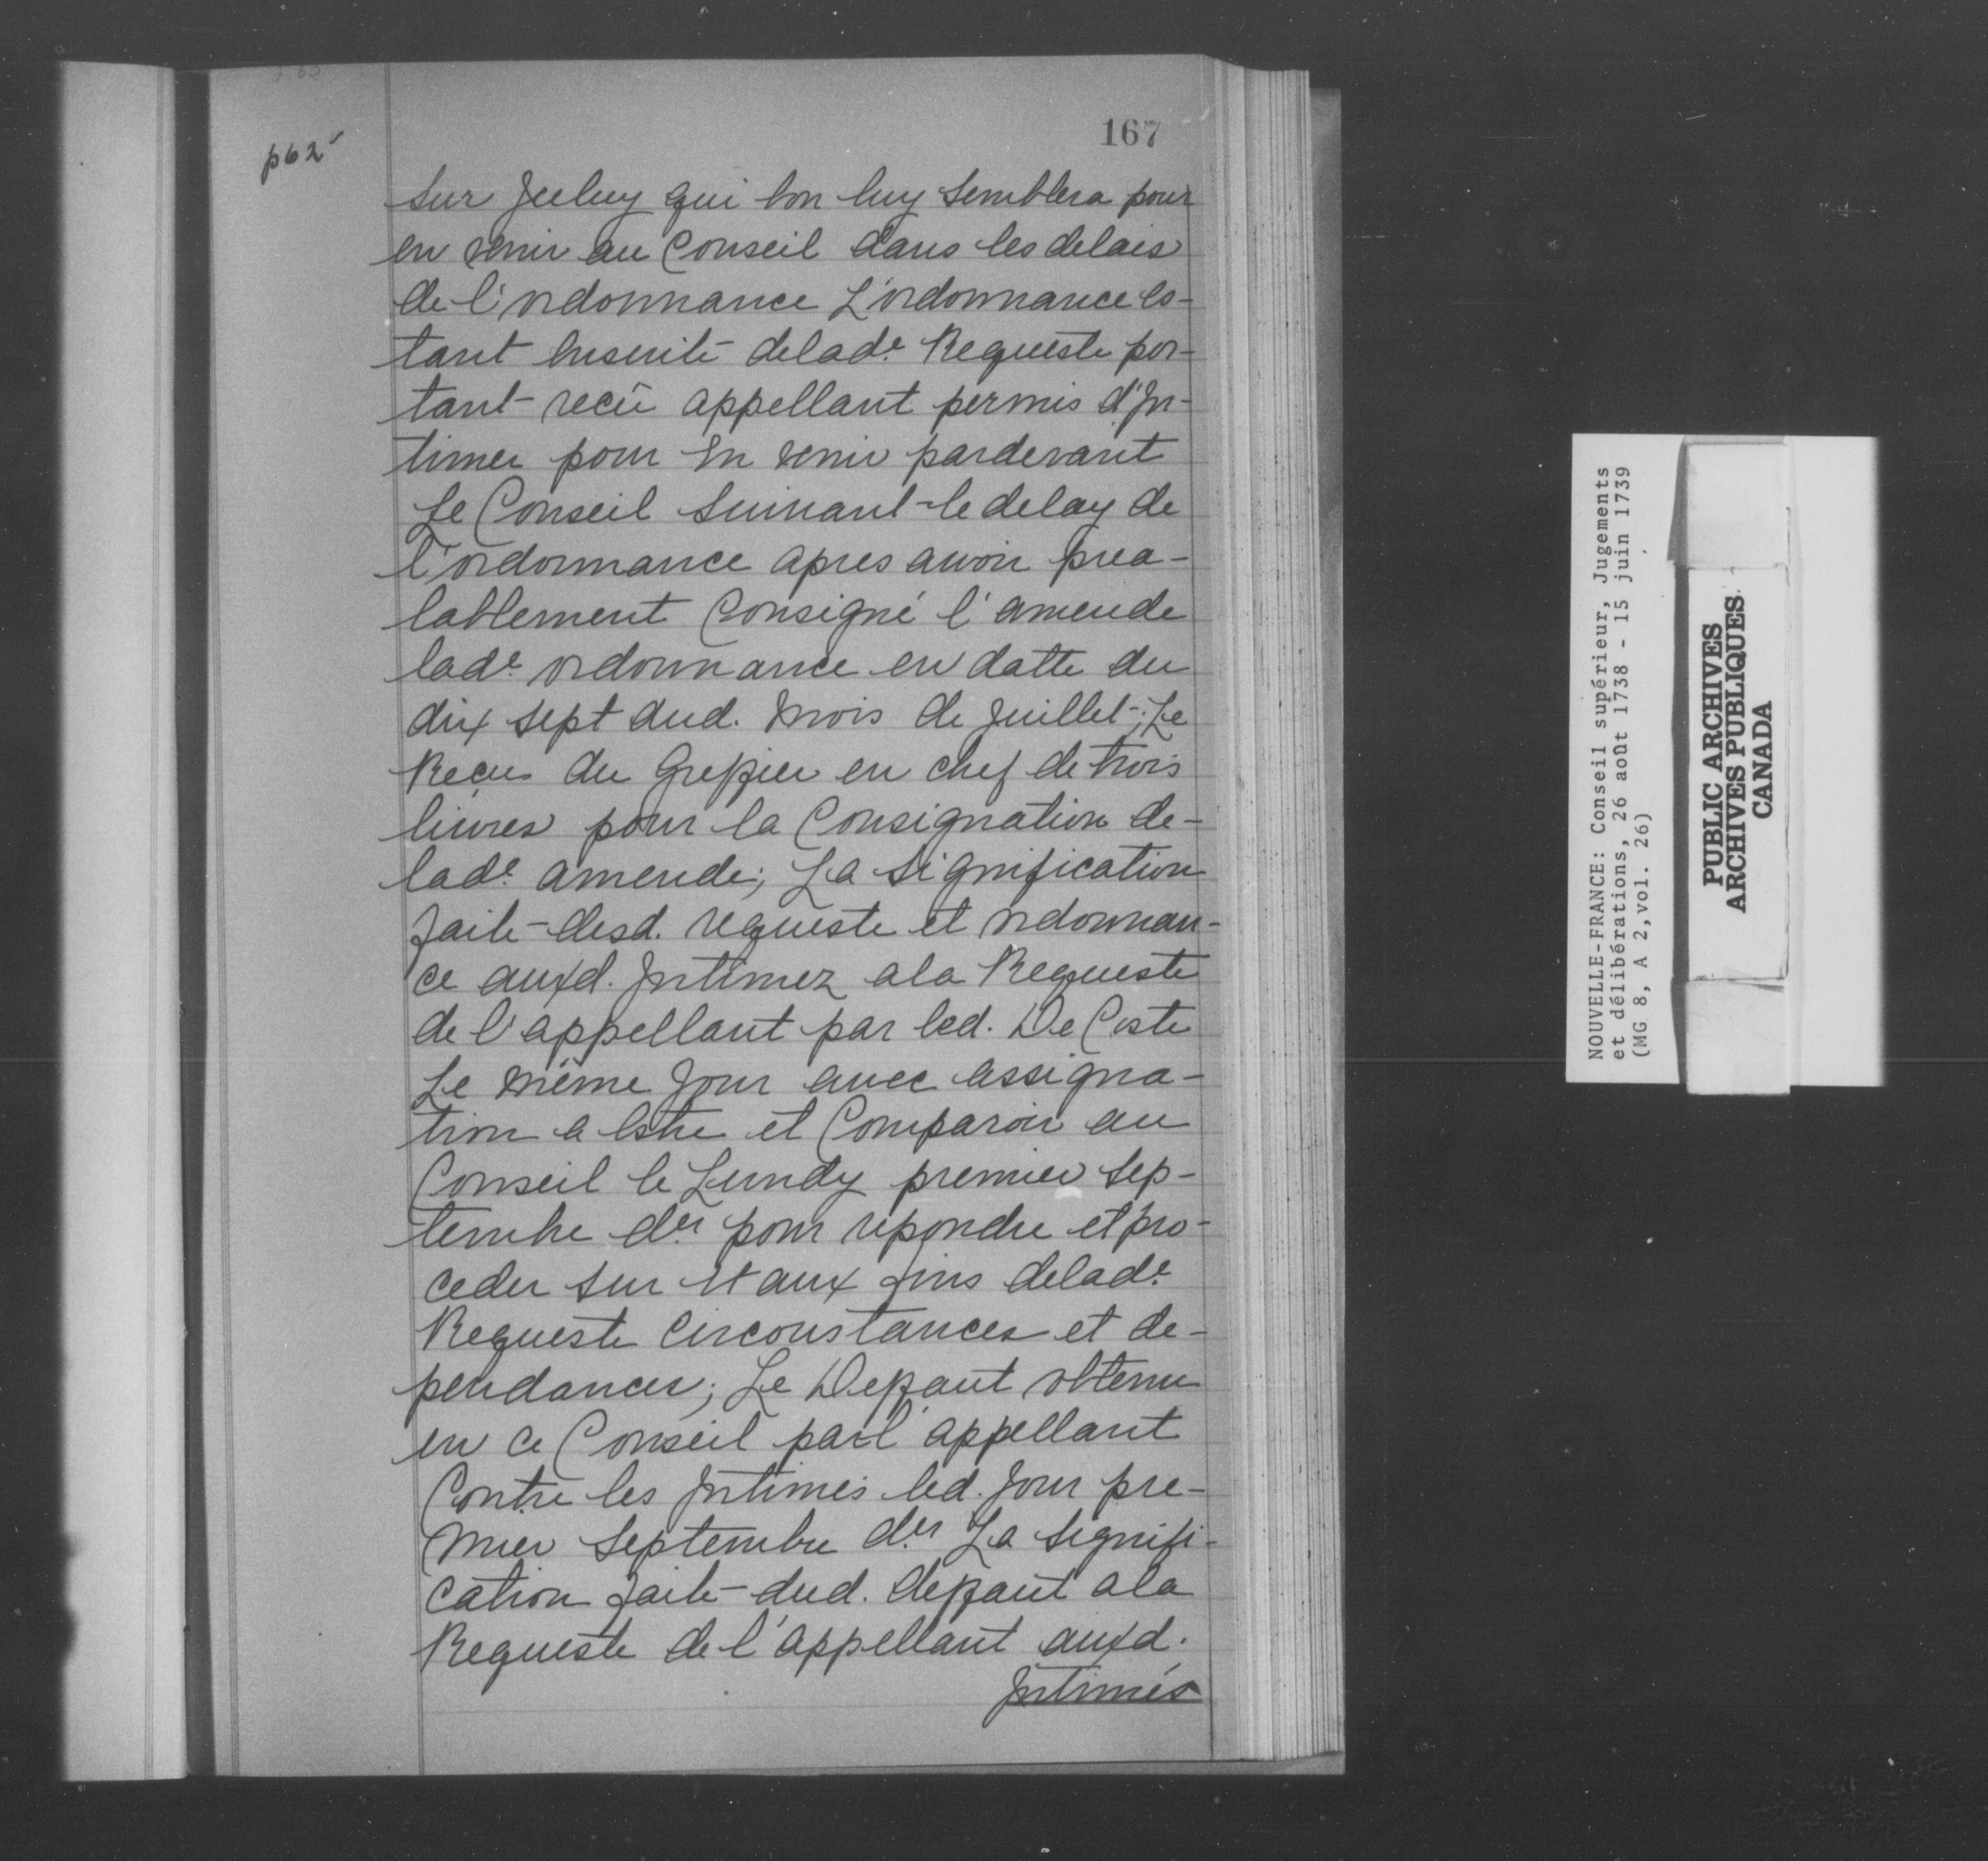 167
p62
sur Jceluy qui bon luy semblera pour
en venir au Conseil dans les delais
de l'ordonnance L'ordonnance es-
tant ensuite delade. Requeste por-
tant recû appellant permis d'Jn-
timer pour En venir pardevant
Le Conseil suivant le delay de
l'ordonnance apres avoir prea-
lablement Consigné l'amende
lade. ordonnance en datte du
dix sept dud. mois de Juillet; Le
Reçu du Greffier en chef de trois
livres pour la Consignation de-
lade. amende; La signification
faite desd. requeste et ordonnan-
ce auxd. Jntimez a la Requeste
de l'appellant par led. De Coste
Le même Jour avec assigna-
tion a Estre et Comparoir au
Conseil le Lundy premier sep-
tembre der. pour repondre et pro-
ceder sur et aux fins delade.
Requeste circonstances et de-
pendances; Le Deffaut obtenu
en ce Conseil par l'appellant
Contre les Jntimés led. Jour pre-
mier Septembre der. La signifi-
cation faite dud. deffaut a la
Requeste de l'appellant auxd.
Jntimés
NOUVELLE-FRANCE: Conseil supérieur, Jugements
et délibérations, 26 août 1738 - 15 juin 1739
(MG 8, A 2, vol. 26)
PUBLIC ARCHIVES
ARCHIVES PUBLIQUES
CANADA